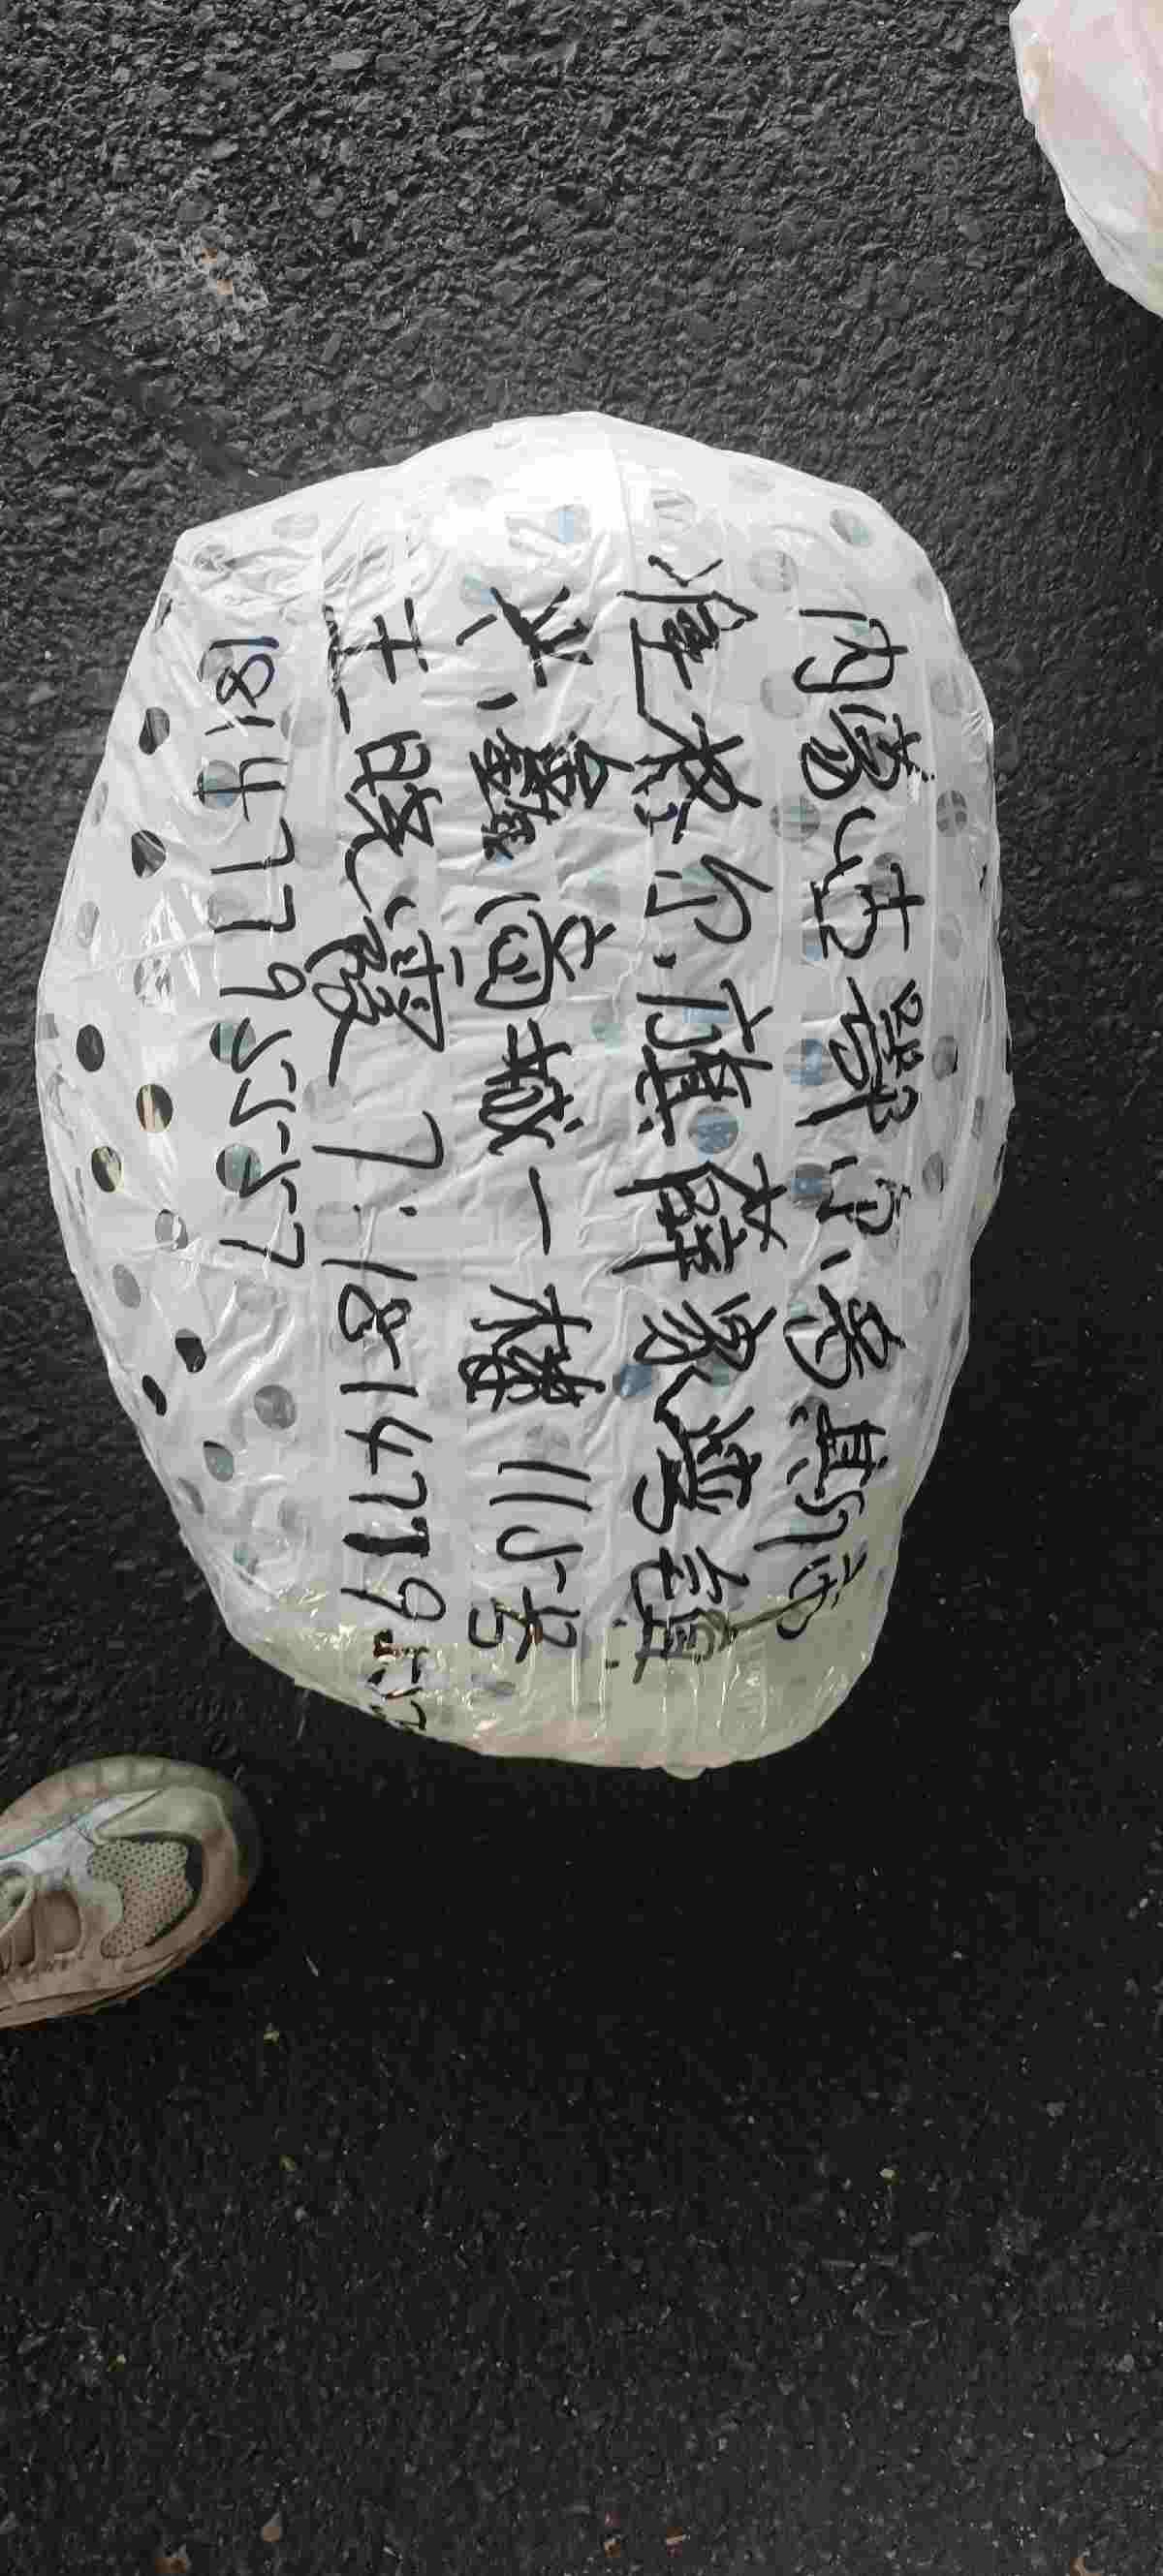 内蒙古鄂尔多斯市
准格尔旗薛家湾镇
兴鑫商城一楼115号
王晓霞 7.18147795
18147795557